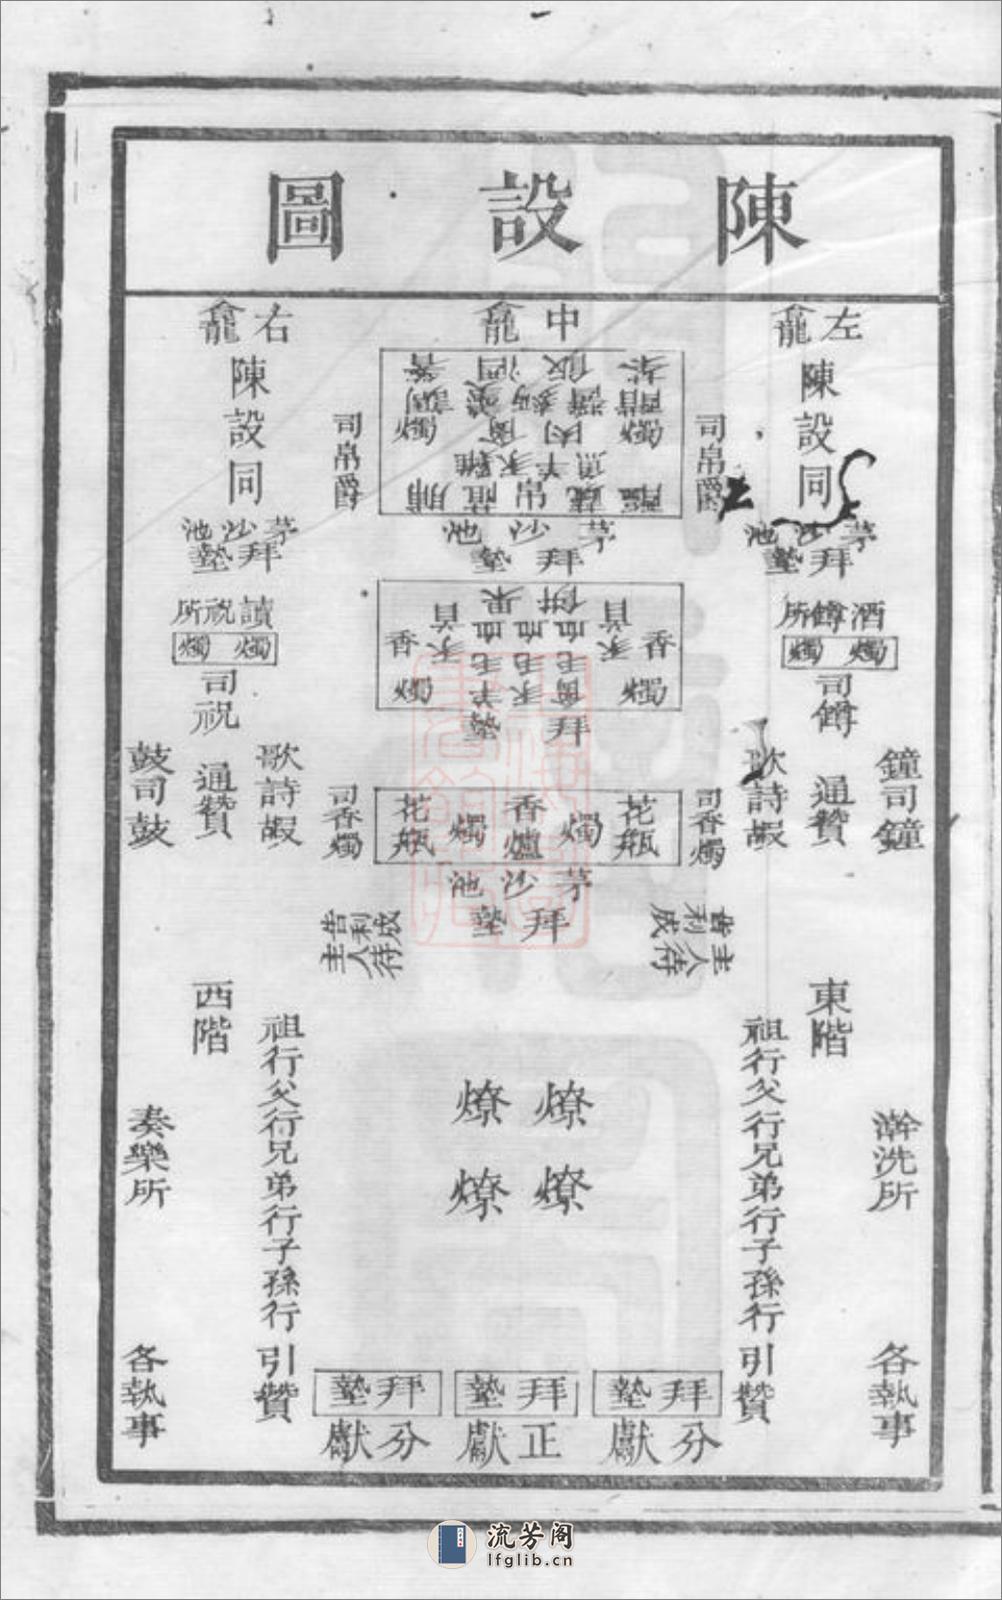 陳設圖
左龕
陳設同
茅沙池
拜墊
酒罇所
燭燭
司罇
通贊
鐘司鐘
歌詩嘏
東階
盥洗所
祖行父行兄弟行子孫行
引贊
各執事
中龕
司帛爵
茶飯酒箸
燭肉燭
魚羊豕雞
茅沙池
拜墊
餅果
首首
香血血血香
豕豕
燭毛毛毛燭
拜墊
司香燭
花瓶燭香爐燭花瓶
司香燭
茅沙池
拜墊
主人待
告利成
主人待
告利成
燎燎
燎燎
拜墊
拜墊
拜墊
分獻
正獻
分獻
右龕
陳設同
司帛爵
茅沙池
拜墊
讀祝所
燭燭
司祝
通贊
歌詩嘏
鼓司鼓
西階
奏樂所
祖行父行兄弟行子孫行
引贊
各執事
流芳阁
lfglib.cn